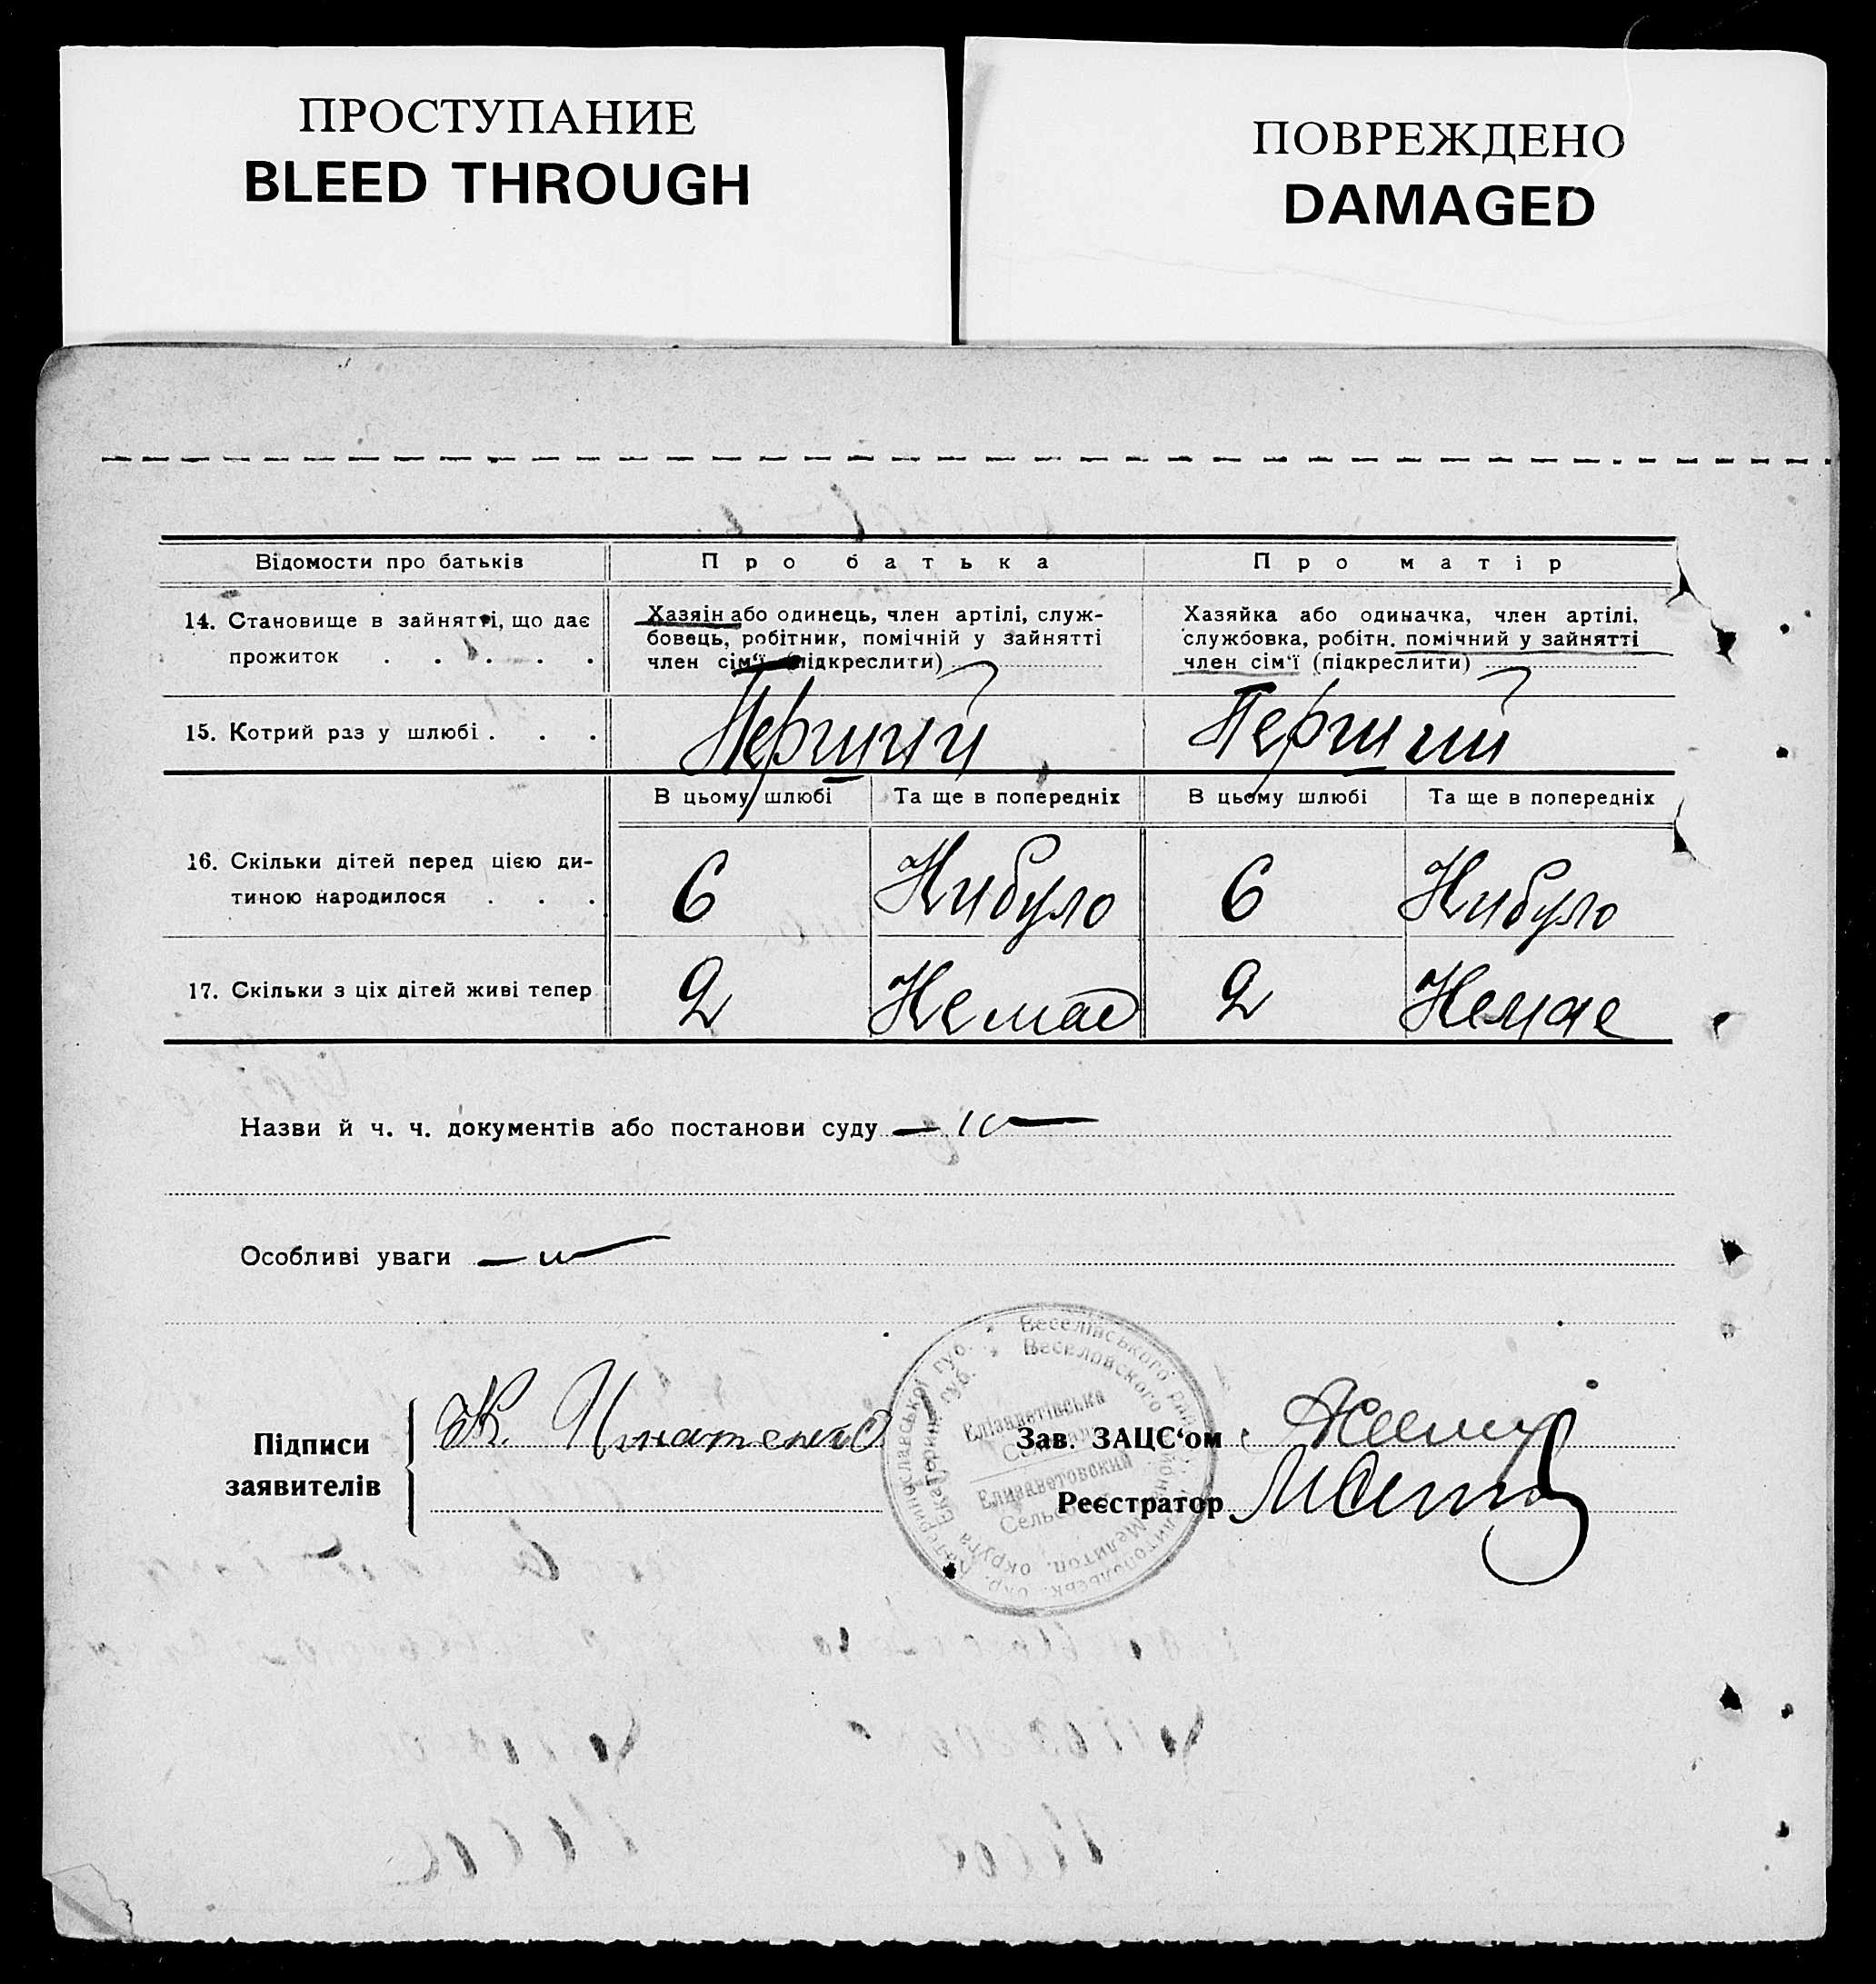 ПРОСТУПАНИЕ
BLEED THROUGH
ПОВРЕЖДЕНО
DAMAGED
Відомости про батьків
Про батька
Про матір
14. Становище в зайнятті, що дає
прожиток . . . . .
Хазяін або одинець, член артілі, служ-
бовець, робітник, помічній у зайнятті
член сім'ї (підкреслити)
Хазяйка або одиначка, член артілі,
службовка, робітн. помічний у зайнятті
член сім'ї (підкреслити)
15. Котрий раз у шлюбі . . .
Перший
Перший
В цьому шлюбі
Та ще в попередніх
В цьому шлюбі
Та ще в попередніх
16. Скільки дітей перед цією ди-
тиною народилося . . .
6
Нибуло
6
Нибуло
17. Скільки з ціх дітей живі тепер
2
Немае
2
Немае
Назви й ч. ч. документів або постанови суду
Особливі уваги
Підписи
заявителів
К. Игнатенко
Веселівського
Веселовского
Єлізаветівська
Елизаветовский
Зав. ЗАЦС'ом
Реєстратор